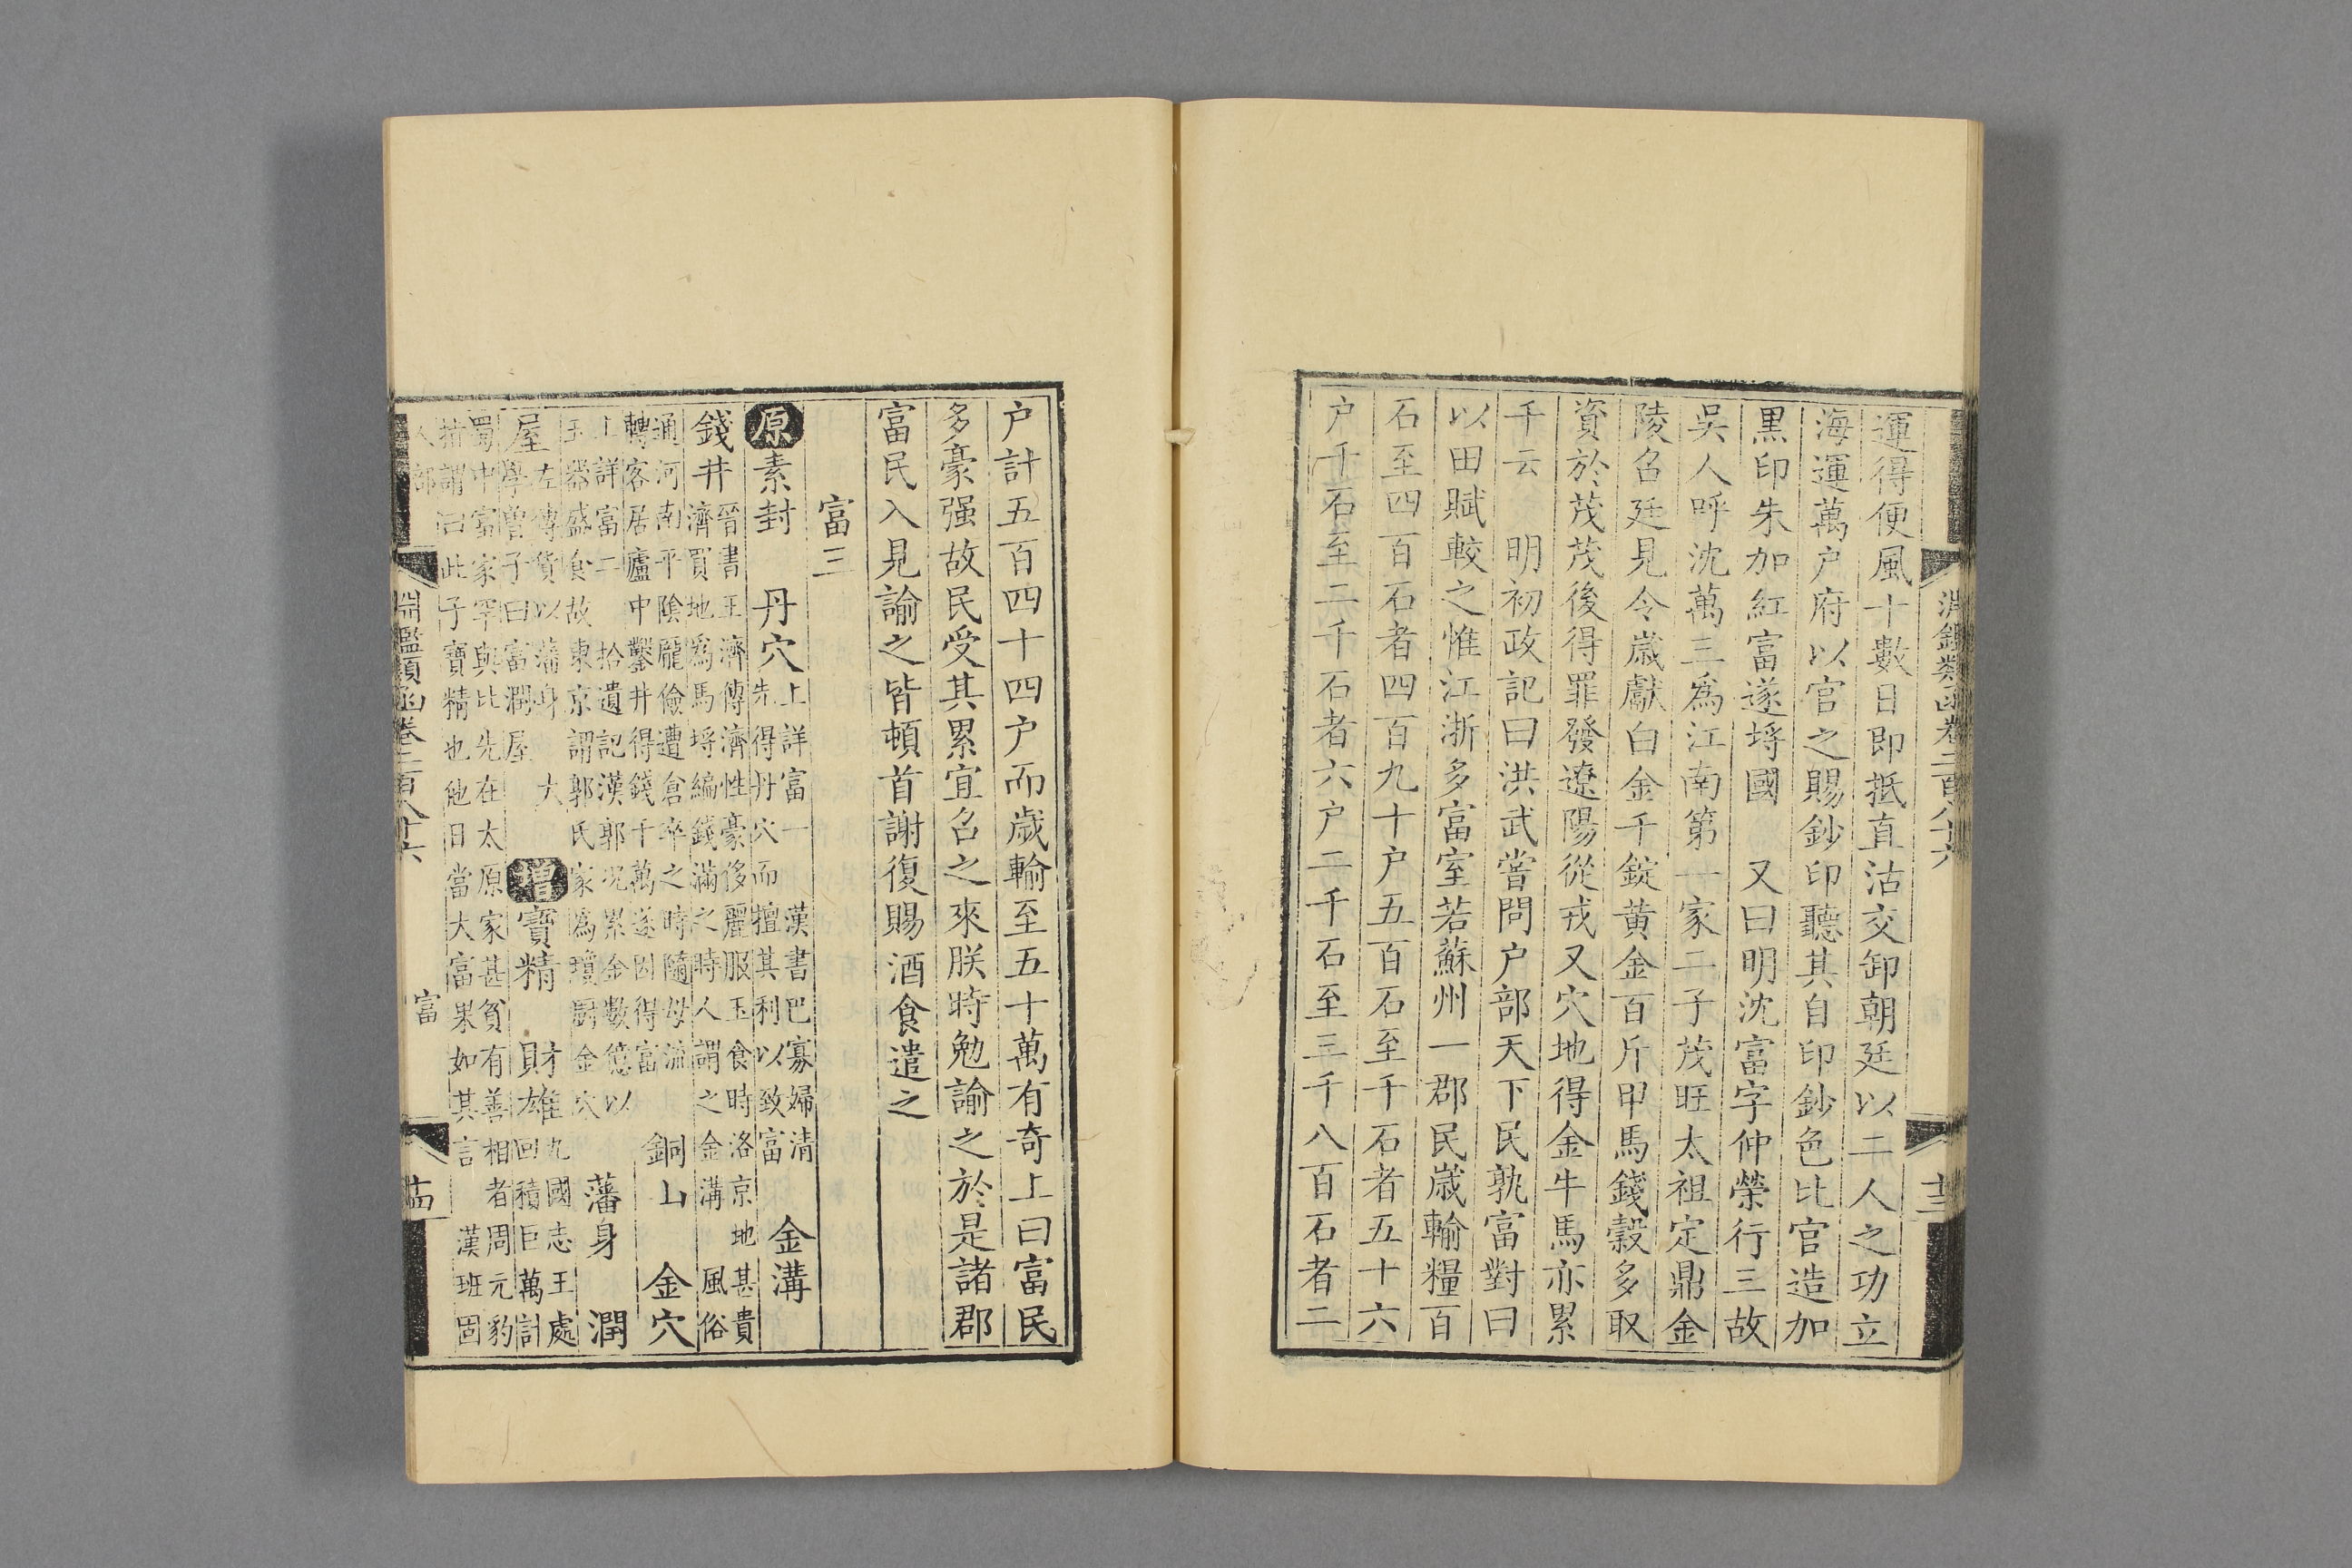 淵鑑類函卷三百八十六
十三
運得便風十數日即抵直沽交卸朝廷以二人之功立
海運萬户府以官之賜鈔印聽其自印鈔色比官造加
黒印朱加紅富遂埓國　又曰明沈富字仲榮行三故
吳人呼沈萬三爲江南第一家二子茂旺太祖定鼎金
陵召廷見令歳獻白金千錠黄金百斤甲馬錢穀多取
資於茂茂後得罪發遼陽從戎又穴地得金牛馬亦累
千云　明初政記曰洪武嘗問户部天下民孰富對曰
以田賦較之惟江浙多富室若蘇州一郡民歳輸糧百
石至四百石者四百九十户五百石至千石者五十六
户千石至二千石者六户二千石至三千八百石者二
户計五百四十四户而歳輸至五十萬有奇上曰富民
多豪强故民受其累宜召之來朕時勉諭之於是諸郡
富民入見諭之皆頓首謝復賜酒食遣之
富三
原素封　丹穴上詳富一　漢書巴寡婦清先得丹穴而擅其利以致富　金溝
錢井晉書王濟傳濟性豪侈麗服玉食時洛京地甚貴濟買地為馬埓編錢滿之時人謂之金溝　風俗
通河南平陰龐儉遭倉卒之時隨母流轉客居廬中鑿井得錢千萬遂因得富　銅山　金穴
上詳富二　拾遺記漢郭况累金數億以玉器盛食故東京謂郭氏家為瓊厨金穴　藩身　潤
屋左傳貨以藩身　大學曾子曰富潤屋　增寶精　財雄九國志王處回積巨萬計
蜀中富家罕與比先在太原家甚貧有善相者周元豹指謂曰此子寶精也他日當大富果如其言　漢班固
人部　淵鑑類函卷三百八十六　富　十四